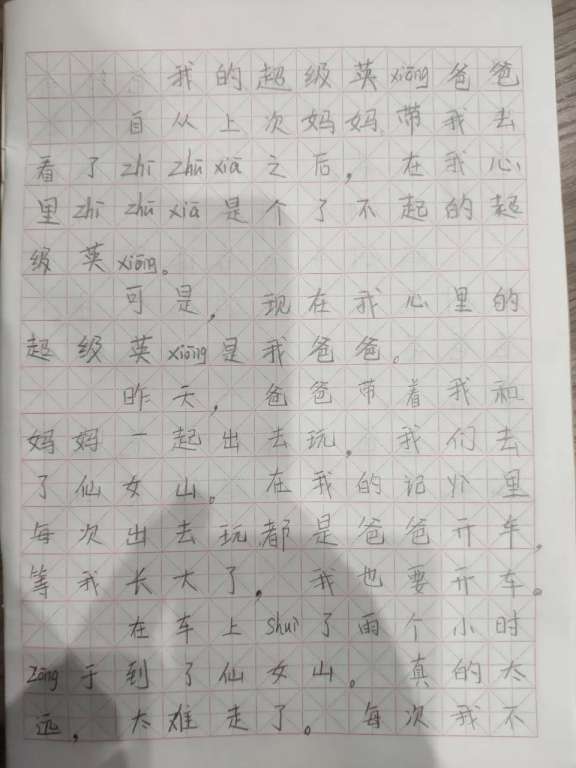 我的超级英xióng爸爸
自从上次妈妈带我去
看了zhī zhū xiā之后，在我心
里zhī zhū xiā是个了不起的超
级英xióng。
可是，现在我心里的
超级英xióng是我爸爸。
昨天，爸爸带着我和
妈妈一起出去玩，我们去
了仙女山。在我的记yì里
每次出去玩都是爸爸开车，
等我长大了，我也要开车。
在车上shuì了两个小时
zōng于到了仙女山。真的太
远，太难走了。每次我不